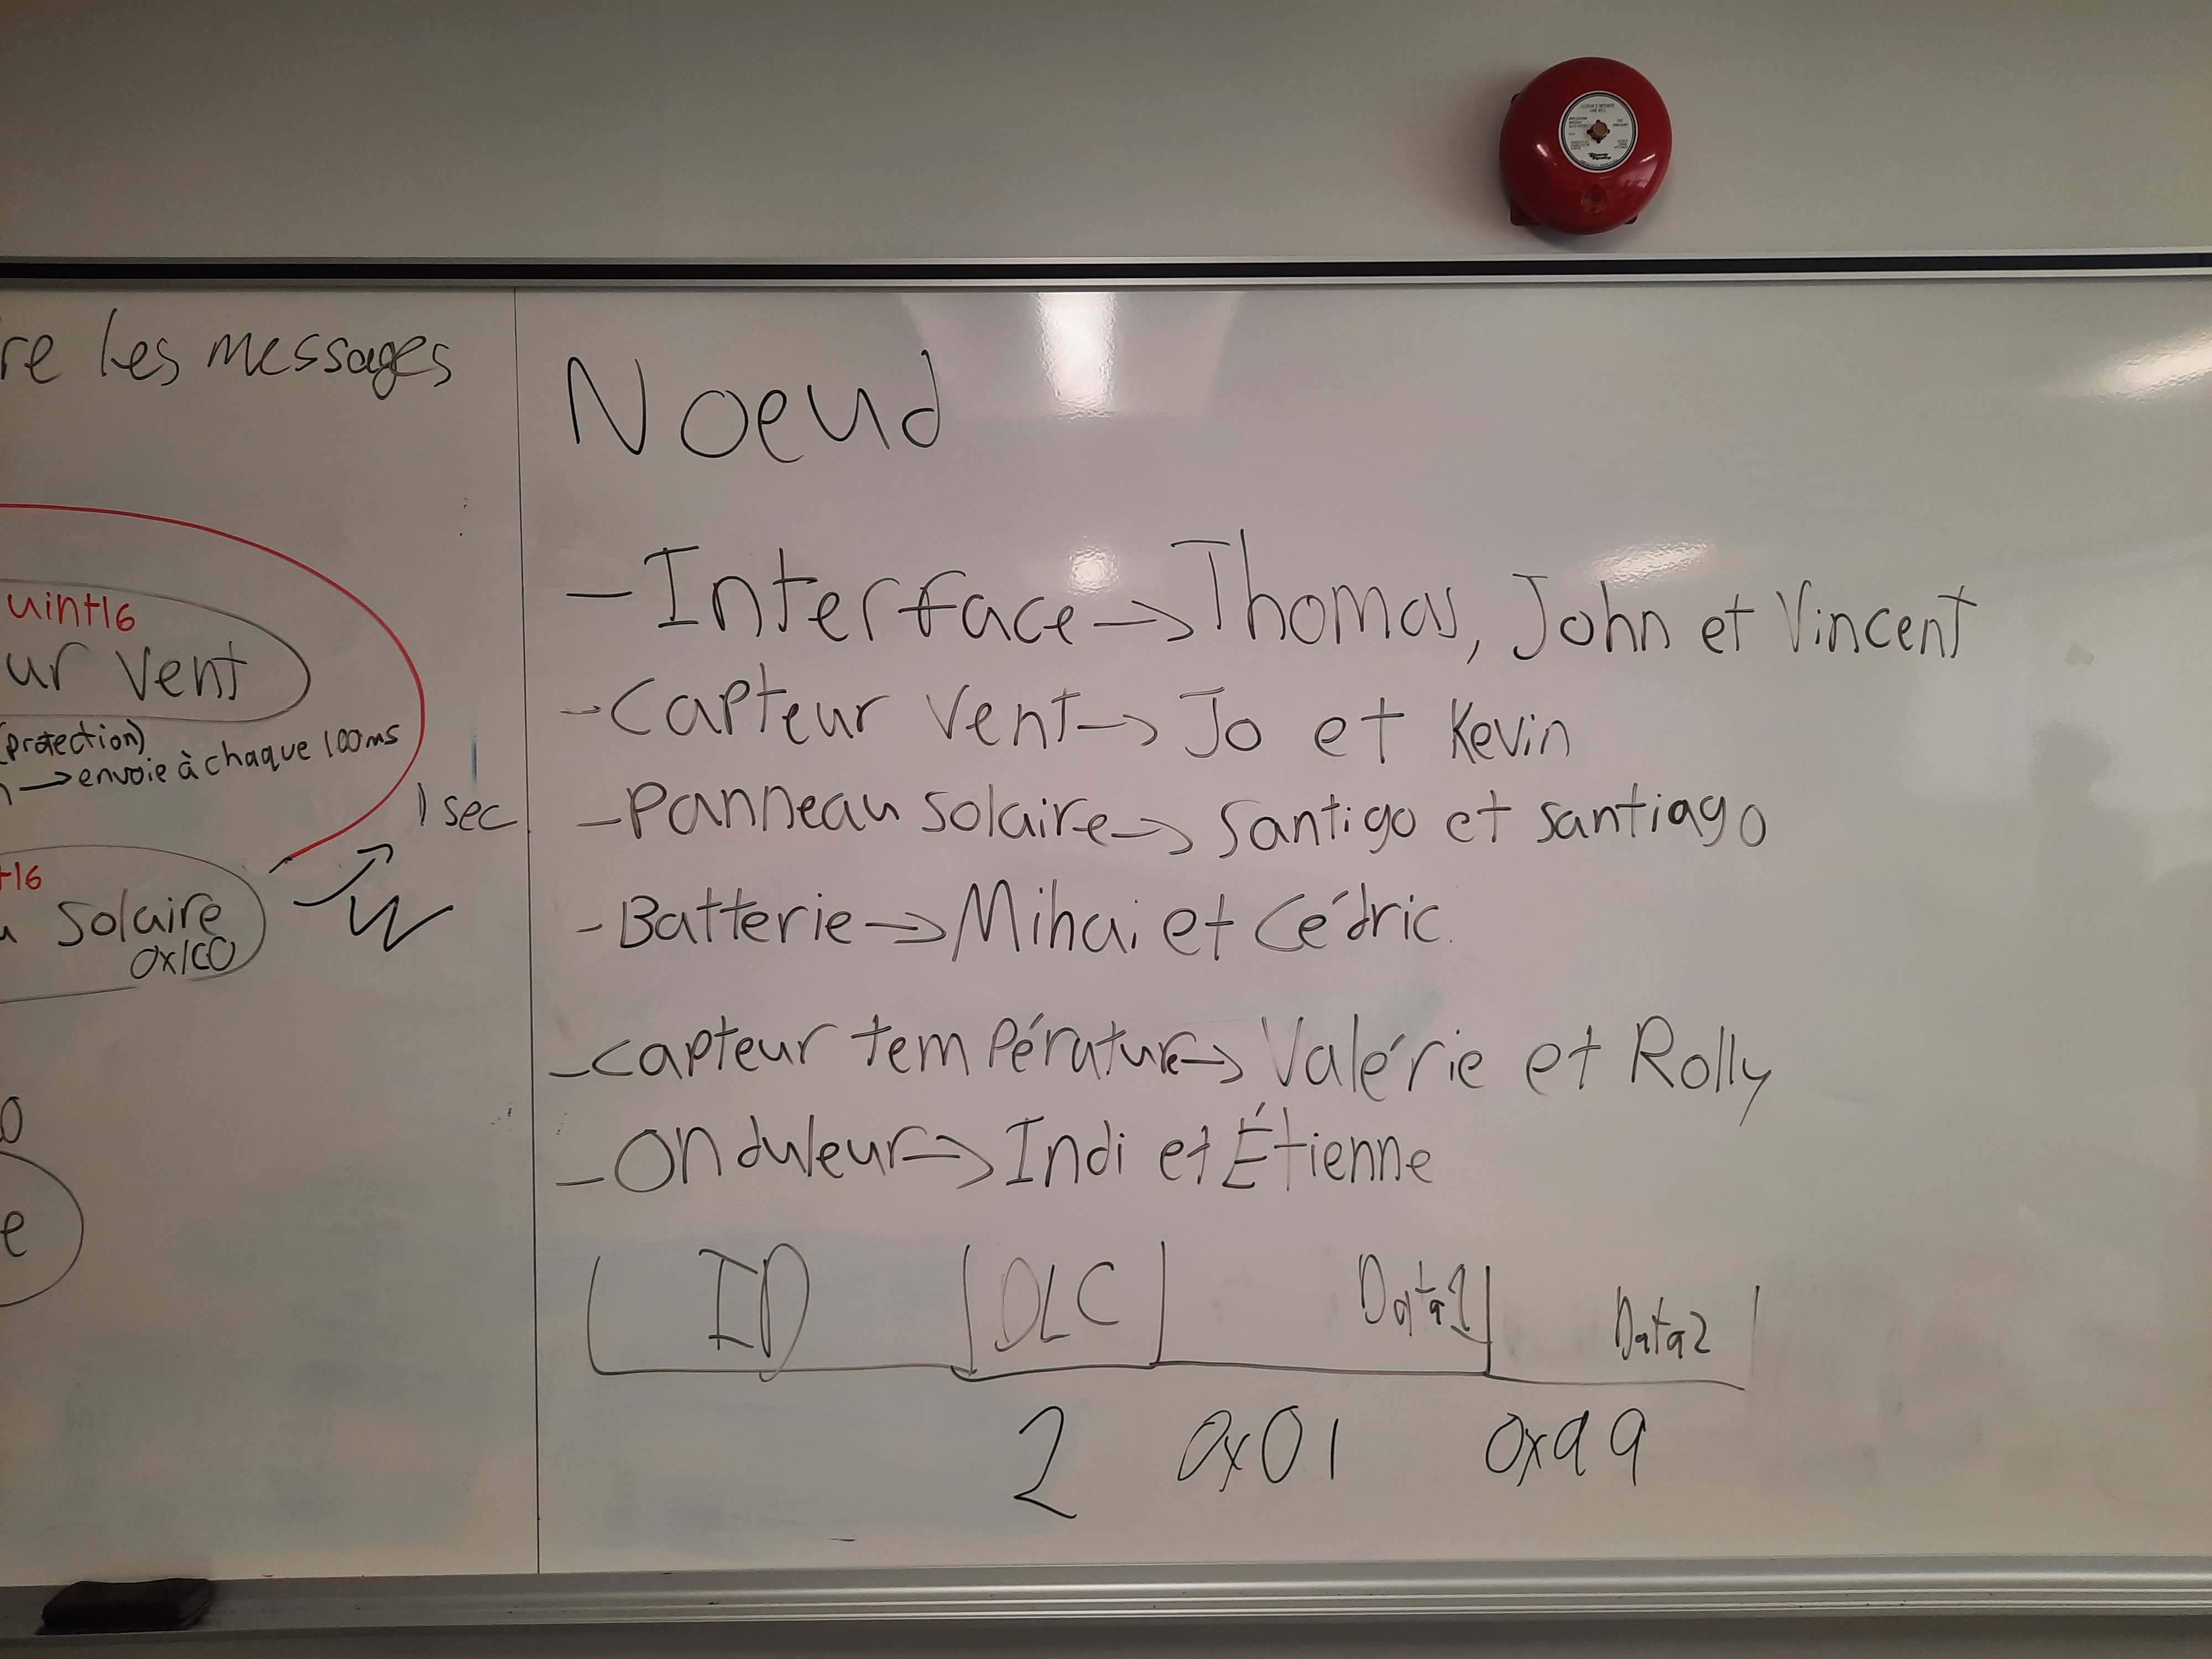 re les messages
uint16
ur vent
(protection)
→ envoie à chaque 100ms
1 sec
t16
u solaire
0x100
W
0
e
Noeud
- Interface → Thomas, John et Vincent
- Capteur vent → Jo et Kevin
- Panneau solaire → Santigo et santiago
- Batterie → Mihai et Cédric.
- capteur température → Valérie et Rolly
- Onduleur → Indi et Étienne
ID DLC Data1 Data2
2 0x01 0x99